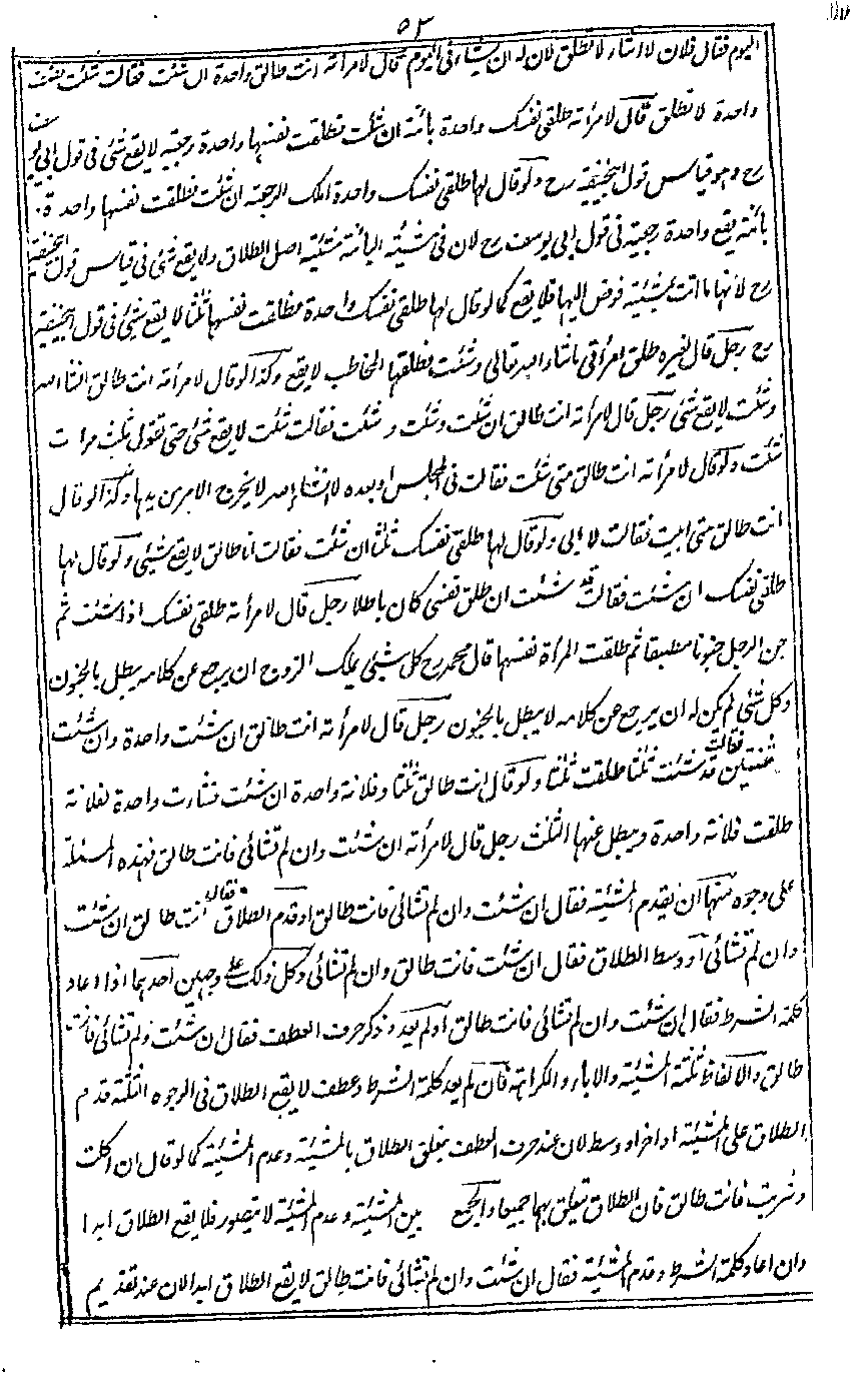 ٥٢
اليوم فقال فلان لا اشاء لا تطلق لان له ان يشاء فى اليوم قال لامرأته انت طالق واحدة ان شئت فقالت شئت نصف
واحدة لا تطلق قال لامرأته طلقى نفسك واحدة بائنة ان شئت فطلقت نفسها واحدة رجعية لا يقع شئ فى قول ابى يوسف
رح وهو قياس قول ابيحنيفة رح ولو قال لها طلقى نفسك واحدة املك الرجعة ان شئت فطلقت نفسها واحدة
بائنة يقع واحدة رجعية فى قول ابى يوسف رح لان فى مشيئة البائنة مشيئة اصل الطلاق ولا يقع شئ فى قياس قول ابيحنيفة
رح لأنها ما اتت بمشيئة فوض اليها فلا يقع كما لو قال لها طلقى نفسك واحدة فطلقت نفسها ثلثا لا يقع شئ فى قول ابيحنيفة
رح رجل قال لغيره طلق امرأتى ما شاء الله تعالى وشئت فطلقها المخاطب لا يقع وكذا لو قال لامرأته انت طالق انشاء الله
وشئت لا يقع شئ رجل قال لامرأته انت طالق ان شئت وشئت و شئت فقالت شئت لا يقع شئ حتى تقول ثلث مرات
شئت ولو قال لامرأته انت طالق متى شئت فقالت فى المجلس او بعده لا انشاء الله لا يخرج الامر من يدها وكذا لو قال
انت طالق متى ابيت فقالت لا ابى ولو قال لها طلقى نفسك ثلثا ان شئت فقالت انا طالق لا يقع شئ ولو قال لها
طلقى نفسك ان شئت فقالت قد شئت ان طلق نفسى كان باطلا رجل قال لامرأته طلقى نفسك اذا شئت ثم
جن الرجل جنونا مطبقا ثم طلقت المرأة نفسها قال محمد رح كل شئ يملك الزوج ان يرجع عن كلامه يبطل بالجنون
وكل شئ لم يكن له ان يرجع عن كلامه لا يبطل بالجنون رجل قال لامرأته انت طالق ان شئت واحدة وان شئت
ثنتين فقالت قد شئت ثلثا طلقت ثلثا ولو قال انت طالق ثلثا وفلانة واحدة ان شئت فشاءت واحدة لفلانة
طلقت فلانة واحدة ويبطل عنها الثلث رجل قال لامرأته ان شئت وان لم تشائى فانت طالق فهذه المسئلة
على وجوه منها ان يقدم المشيئة فقال ان شئت وان لم تشائى فانت طالق او قدم الطلاق فقال انت طالق ان شئت
وان لم تشائى او وسط الطلاق فقال ان شئت فانت طالق وان لم تشائى وكل ذلك على وجهين احدهما اذا اعاد
كلمة الشرط فقال ان شئت وان لم تشائى فانت طالق او لم يعد وذكر حرف العطف فقال ان شئت ولم تشائى فانت
طالق والالفاظ ثلثة المشيئة والاباء والكراهة فان لم يعد كلمة الشرط وعطف لا يقع الطلاق فى الوجوه الثلثة قدم
الطلاق على المشيئة او اخر او وسط لان عند حرف العطف يتعلق الطلاق بالمشيئة وعدم المشيئة كما لو قال ان اكلت
وشربت فانت طالق فان الطلاق يتعلق بهما جميعا والجمع بين المشيئة وعدم المشيئة لا يتصور فلا يقع الطلاق ابدا
وان اعاد كلمة الشرط وقدم المشيئة فقال ان شئت وان لم تشائى فانت طالق لا يقع الطلاق ابدا لان عند تقديم